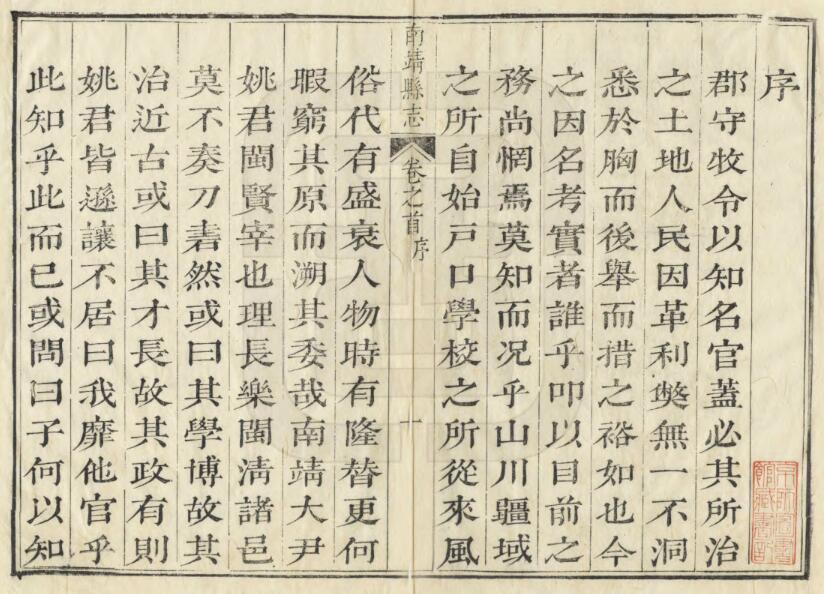 序
郡守牧令以知名官蓋必其所治
之土地人民因革利獘無一不洞
悉於胸而後舉而措之裕如也今
之因名考實者誰乎叩以目前之
務尚惘焉莫知而况乎山川疆域
之所自始戸口學校之所從來風
南靖縣志
卷之首序
一
俗代有盛衰人物時有隆替更何
暇窮其原而溯其委哉南靖大尹
姚君閩賢宰也理長樂閩淸諸邑
莫不奏刀砉然或曰其學博故其
治近古或曰其才長故其政有則
姚君皆遜讓不居曰我靡他官乎
此知乎此而已或問曰子何以知